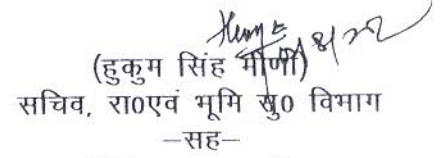 (हुकुम सिंह मीणा)
सचिव, रा0एवं भूमि सु0 विभाग
–सह–